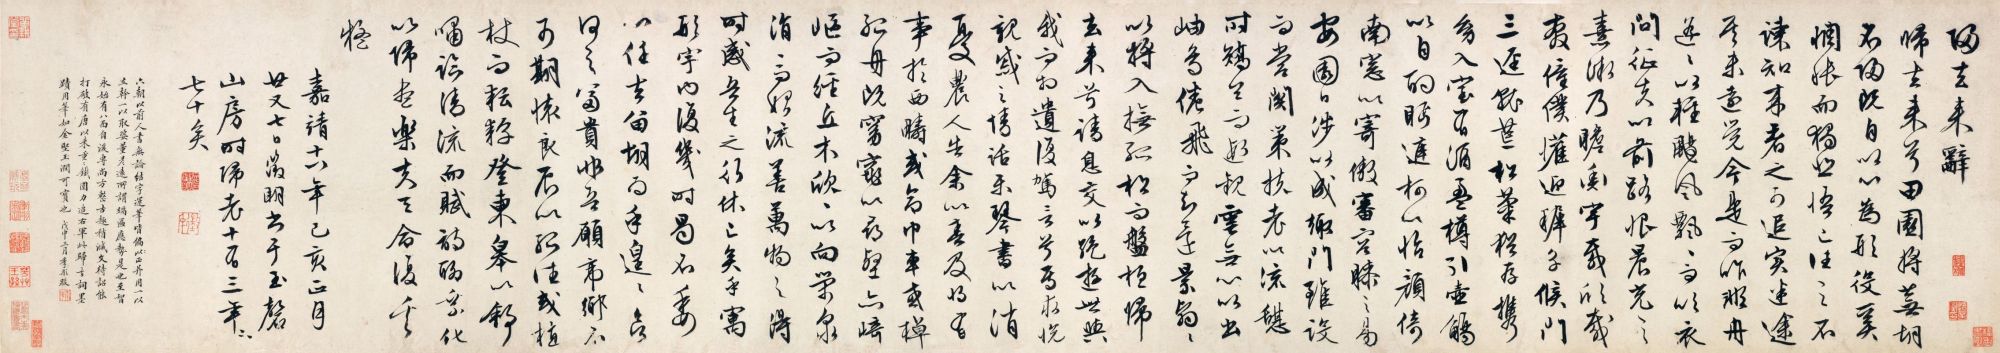 歸去來辭
歸去來兮田園將蕪胡
不歸既自以心為形役奚
惆悵而獨悲悟已往之不
諫知來者之可追實迷途
其未遠覺今是而昨非舟
遙遙以輕颺風飄飄而吹衣
問征夫以前路恨晨光之
熹微乃瞻衡宇載欣載
奔僮僕懽迎稚子候門
三逕就荒松菊猶存攜
幼入室有酒盈樽引壺觴
以自酌眄庭柯以怡顏倚
南窻以寄傲審容膝之易
安園日涉以成趣門雖設
而常關策扶老以流憩
時矯首而遐觀雲無心以出
岫鳥倦飛而知還景翳翳
以將入撫孤松而盤桓歸
去來兮請息交以絕游世與
我而相遺復駕言兮焉求悅
親戚之情話樂琴書以消
憂農人告余以春及將有
事於西疇或命巾車或棹
孤舟既窈窕以尋壑亦崎
嶇而經丘木欣欣以向榮泉
涓涓而始流善萬物之得
時感吾生之行休已矣乎寓
形宇內復幾時曷不委
心任去留胡為乎遑遑兮欲
何之富貴非吾願帝鄉不
可期懷良辰以孤往或植
杖而耘耔登東皋以舒
嘯臨清流而賦詩聊乘化
以歸盡樂夫天命復奚
疑
嘉靖十八年己亥正月
廿又七日徵明書于玉磬
山房時歸老十有三年
七十矣
六朝以前人書無論結字運筆皆偏正并用一以
立幹一以取姿
永始有八面
打破有唐以來重
蹟用筆如金堅玉潤可寶也戊申二月